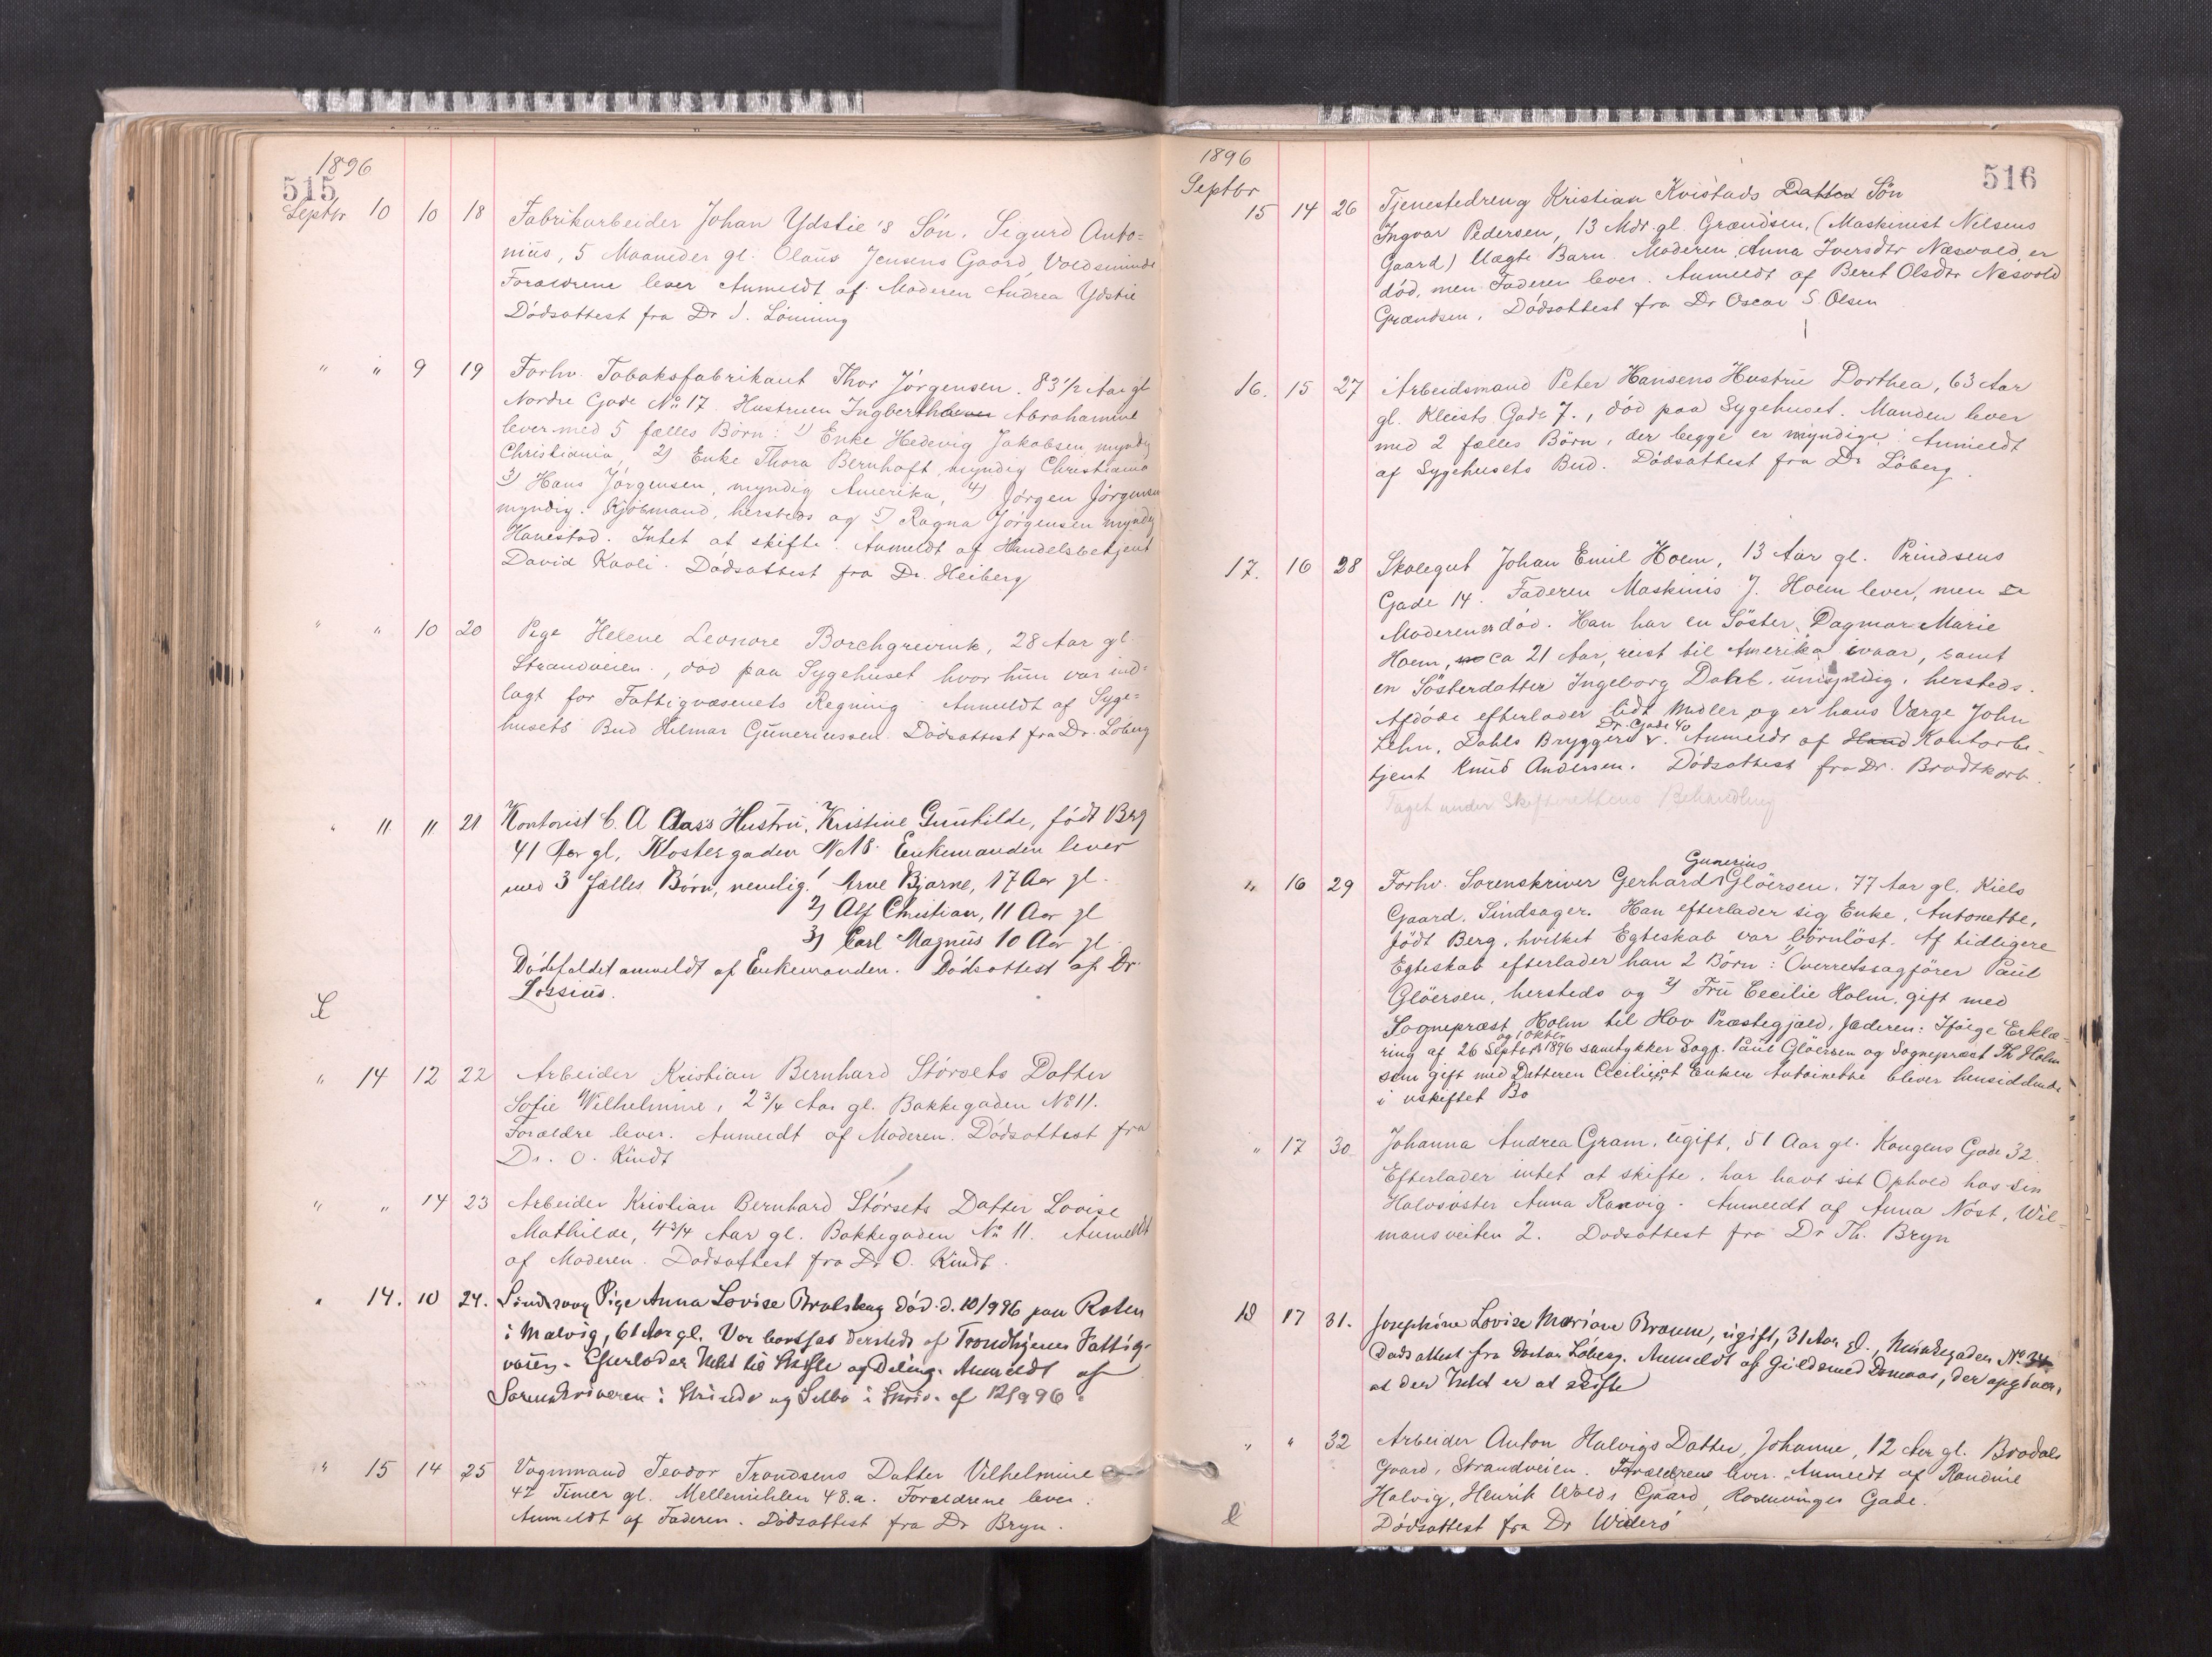 1896
515
Septbr 10 10 18 Fabrikarbeider Johan Ydstie's Sön, Sigurd Anto=
nius, 5 Maaneder gl. Olaus Jensens Gaard, Voldsminde
Forældrene lever Anmeldt af Moderen Andrea Ydstie
Dödsattest fra Dr J. Lönning
" " 9 19 Forhv. Tobaksfabrikant Thor Jörgensen. 83 1/2 Aar gl
Nordre Gade No 17. Hustruen Ingberth Abrahamine
lever med 5 fælles Börn: 1) Enke Hedevig Jakobsen, myndig
Christiania, 2) Enke Thora Bernhoft, myndig Christiania
3) Hans Jörgensen, myndig Amerika, 4) Jörgen Jörgensen
myndig. Kjöbmand, hersteds og 5) Ragna Jörgensen myndig
Hanestad. Intet at skifte. Anmeldt af Handelsbetjent
David Kavli. Dödsattest fra Dr. Heiberg
" " 10 20 Pige Helene Leonore Borchgrevink, 28 Aar gl
Strandveien, död paa Sygehuset hvor hun var ind=
lagt for Fattigvæsenets Regning. Anmeldt af Syge=
husets Bud Hilmar Guneriussen. Dödsattest fra Dr. Löberg
" 11 11 21 Kontorist C. A Aas's Hustru, Kristine Gunhilde, födt Berg
41 Aar gl, Klostergaden No 18. Enkemanden lever
med 3 fælles Börn, nemlig: 1 Arne Bjarne, 17 Aar gl.
2) Alf Christian, 11 Aar gl
3) Carl Magnus 10 Aar gl.
Dödsfaldet anmeldt af Enkemanden. Dödsattest af Dr.
Lossius.
" 14 12 22 Arbeider Kristian Bernhard Störsets Datter
Sofie Wilhelmine, 2 3/4 Aar gl. Bakkegaden No 11.
Forældre lever. Anmeldt af Moderen. Dödsattest fra
Dr. O. Kindt
" " 14 23 Arbeider Kristian Bernhard Störsets Datter Lovise
Mathilde, 4 3/4 Aar gl. Bakkegaden No 11. Anmeldt
af Moderen. Dödsattest fra Dr O. Kindt.
" 14. 10 24. Sindssvag Pige Anna Lovise Bralskag död d. 10/9 96 paa Roten
i Malvig, 61 Aar gl. Var bortsat dersteds af Trondhjems Fattig-
væsen. Efterlader Intet til Skifte og Deling. Anmeldt af
Sorenskriveren i Strinde og Selbo i Skriv. af 12/9 96.
" 15 14 25 Vognmand Teodor Trondsens Datter Vilhelmine
42 Timer gl. Mellemihlen 48.a. Forældrene lever.
Anmeldt af Faderen. Dödsattest fra Dr Bryn.
1896
516
Septbr
15 14 26 Tjenestedreng Kristian Kvistads Datter Sön
Ingvar Pedersen, 13 Mdr. gl. Grændsen, (Maskinist Nelsens
Gaard) Uægte Barn. Moderen Anna Iversdtr Næsvold, er
död, men Faderen lever. Anmeldt af Beret Olsdtr Næsvold
Grændsen. Dödsattest fra Dr Oscar S. Olsen
16. 15 27 Arbeidsmand Peter Hansens Hustru Dorthea, 63 Aar
gl. Kleists Gade 7., död paa Sygehuset. Manden lever
med 2 fælles Börn, der begge er myndige. Anmeldt
af Sygehusets Bud. Dödsattest fra Dr Löberg.
17. 16 28 Skolegut Johan Emil Hoem, 13 Aar gl. Prindsens
Gade 14. Faderen Maskinis J. Hoem lever, men
Moderen er död. Han har en Söster, Dagmar Marie
Hoem, ca 21 Aar, reist til Amerika ivaar, samt
en Sösterdatter Ingeborg Dahl, umyndig, hersteds.
Afdöde efterlader lidt Midler og er hans Værge John
Dr. Gade 40
Lehn, Dahls Bryggeri v. Anmeldt af Hand Kontorbe-
tjent Knud Andersen. Dödsattest fra Dr. Brodtkorb.
Taget under Skifterettens Behandling
" 16 29 Forhv. Sorenskriver Gerhard Gunerius Glöersen, 77 Aar gl. Kiels
Gaard, Sindsager. Han efterlader sig Enke, Antonette,
födt Berg, hvilket Egteskab var börnlöst. Af tidligere
Egteskab efterlader han 2 Börn: 1) Overretssagförer Paul
Glöersen, hersteds og 2) Fru Cecilie Holm, gift med
Sognepræst Holm til Hov Præstegjæld, Jæderen: Ifölge Erklæ-
og 1 Oktbr
ring af 26 Septbr 1896 samtykker Sagf. Paul Glöersen og Sognepræst Th Holm
som gift med Datteren Cecilie, at Enken Antoinette bliver hensiddende
i uskiftet Bo
" 17 30 Johanna Andrea Gram, ugift, 51 Aar gl. Kongens Gade 32.
Efterlader intet at skifte, har havt sit Ophold hos sin
Halvsöster Anna Ranvig. Anmeldt af Anna Nöst, Wil-
mansveiten 2. Dödsattest fra Dr Th. Bryn
18 17 31. Josephine Lovise Mariane Braune, ugift, 31 Aar gl., Munkegaden No 34
Dödsattest fra Doctor Löberg. Anmeldt af Guldsmed Domaas, der opgiver,
at der Intet er at skifte
" " 32 Arbeider Anton Halvigs Datter, Johanne, 12 Aar gl. Brodals
Gaard, Strandveien. Forældrene lever. Anmeldt af Randine
Halvig, Henrik Wolds Gaard, Rosenvinges Gade.
Dödsattest fra Dr Widerö